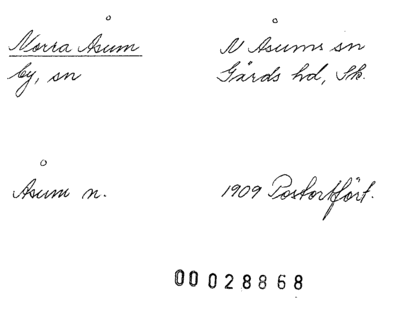 Norra Åsum
by, sn
N Åsums sn
Gärds hd, Sk.
Åsum n.
1909 Postortfört.
00028868